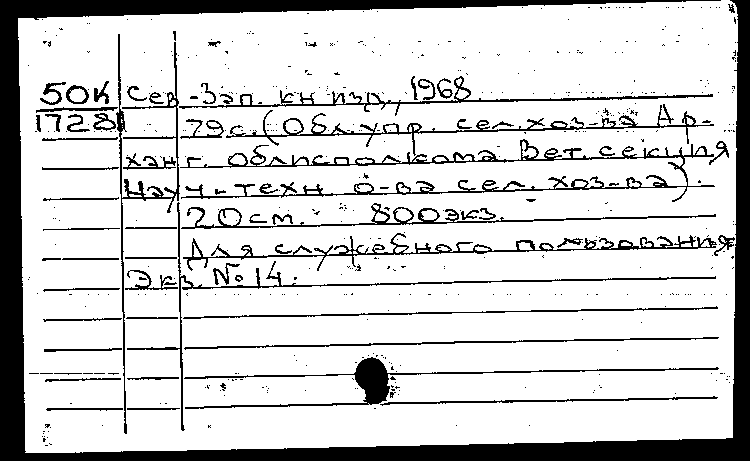 50К Сев.-Зап. кн изд., 1968.
1728 79с. (Обл. упр. сел. хоз-ва Ар-
ханг. облисполкома Вет. секция
Науч.-техн о-ва сел. хоз-ва).
20см. 800экз.
Для служебного пользования
Экз. №14.